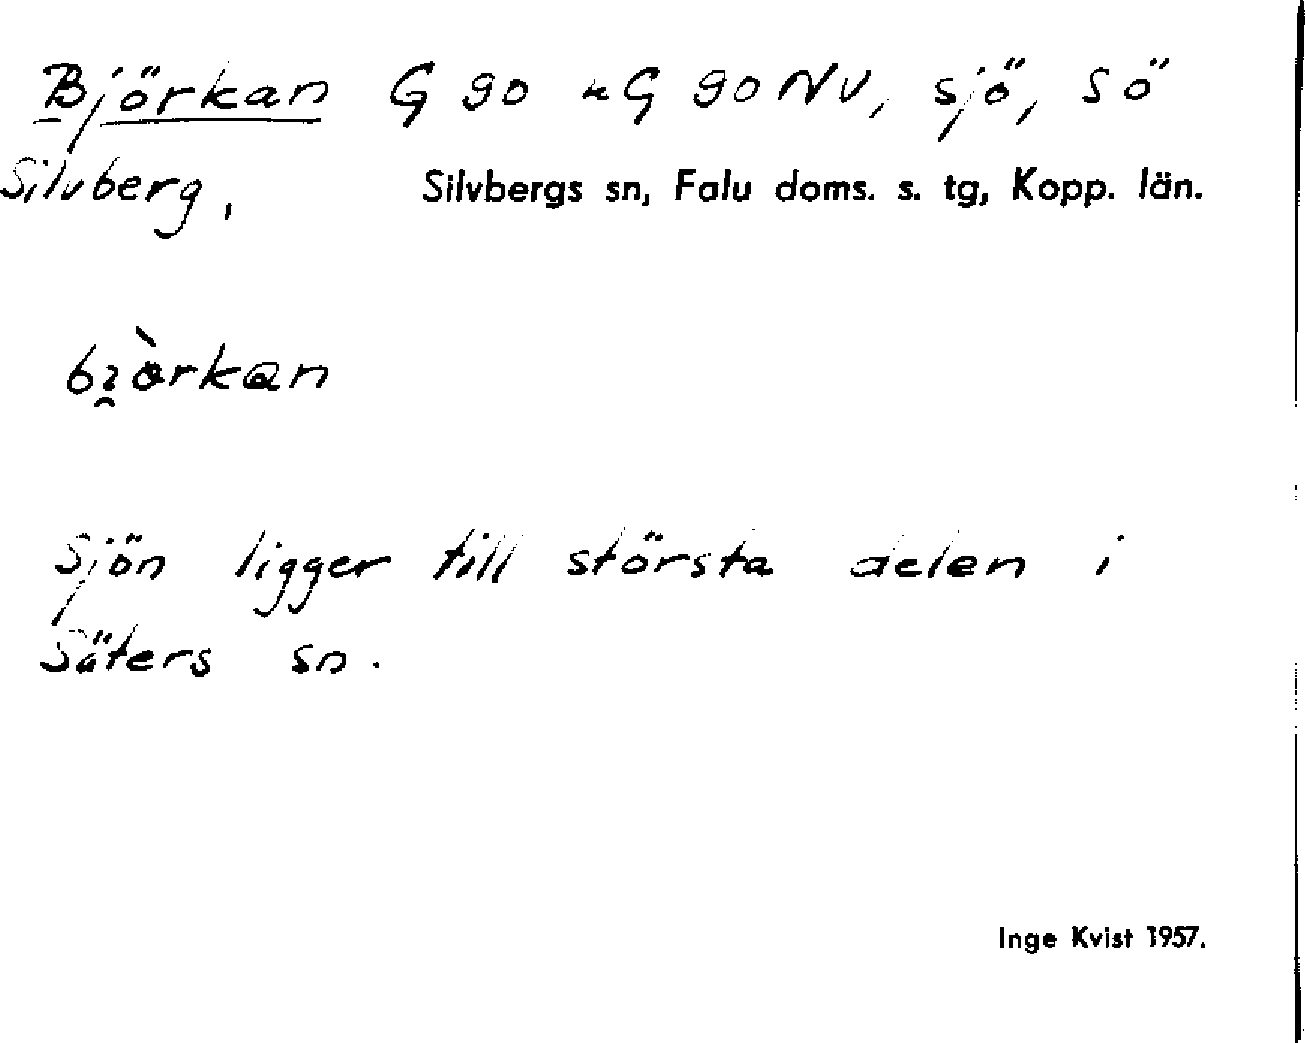 Björkan G 90 u G 90 NV, sjö, SÖ
Silvberg,
Silvbergs sn, Falu doms. s. tg, Kopp. län.
Sjön ligger till största delen i
Säters sn.
Inge Kvist 1957.